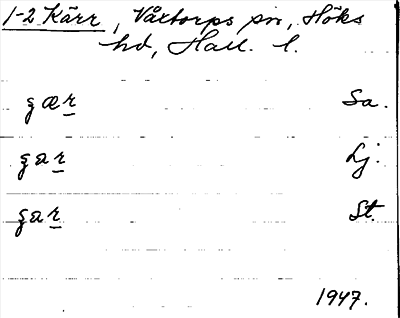 1-2 Kärr, Våxtorps sn, Höks
hd, Hall. l.
gær Sa.
gar Lj.
gar St.
1947.